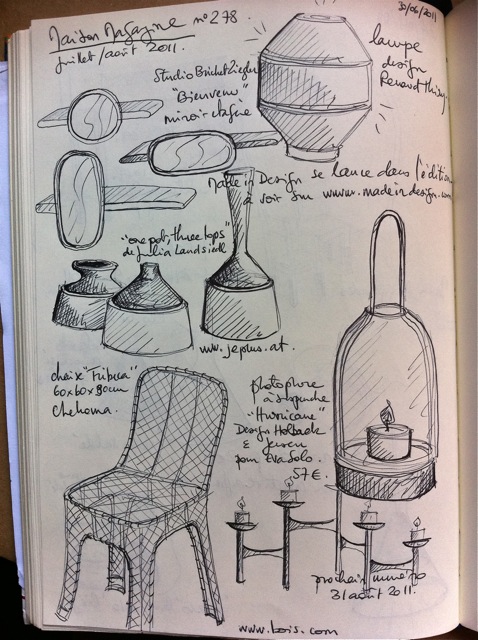 30/06/2011
Maison Magazine n° 278.
juillet/août 2011.
lampe
design
Renaud Thiry
Studio Brichet Ziegler
"Bienvenu"
miroir étagère
Made in Design se lance dans l'édition
à voir sur www.madeindesign.com
"one pot, three tops"
de Julia Landsiedl
www.jeplus.at.
chaise "Fibuca"
60x60x80cm
Chehoma.
photophore
à suspendre
"Hurricane"
Design Holbaek
& Jensen
pour Eva Solo.
57€.
prochain numéro
31 août 2011.